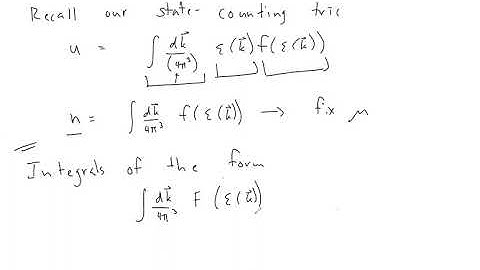 Recall our state-counting tric
u = ∫ dk⃗/(4π³) ε(k⃗) f(ε(k⃗))
n = ∫ dk⃗/4π³ f(ε(k⃗)) → fix μ
Integrals of the form
∫ dk⃗/4π³ F(ε(k⃗))